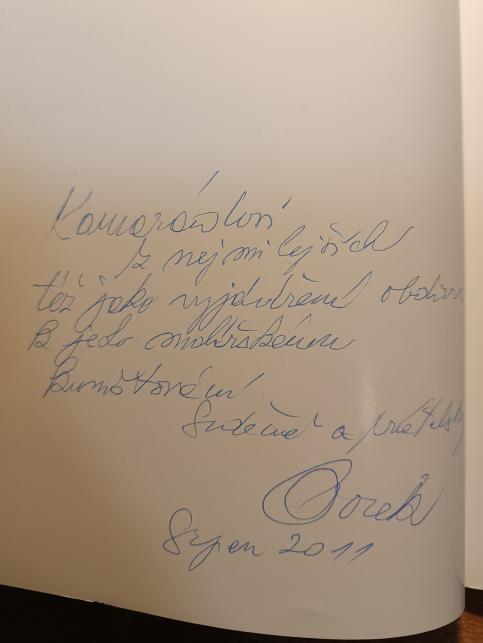 Kamarádovi
z nejmilejších
též jako vyjádření obdivu
k jeho malířskému
Srdečně a přátelsky
Borek
Srpen 2011